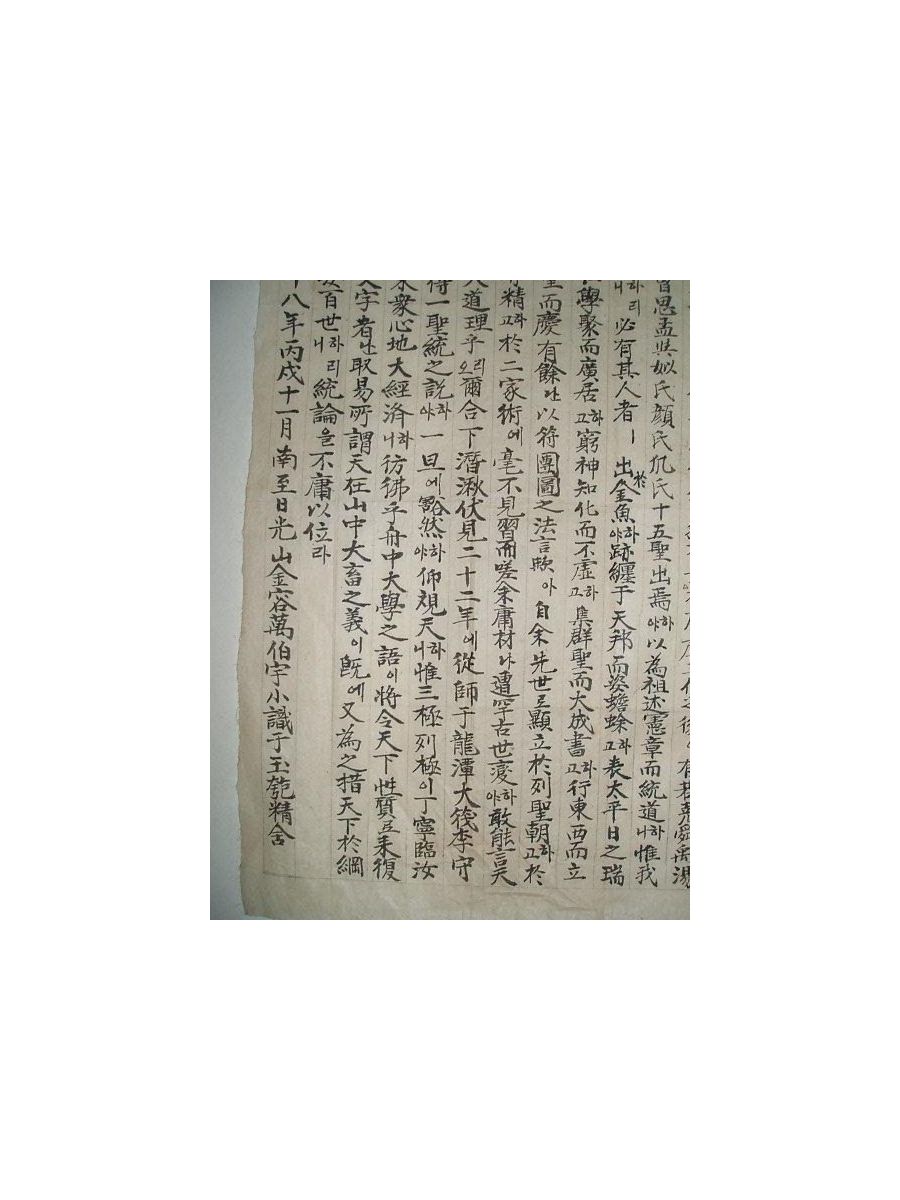 湯
曾思孟與姒氏顔氏仉氏十五聖出焉하야以為祖述憲章而統道하니惟我
하리니必有其人者ㅣ出於金魚하야跡纏于天邦而姿蟾蜍하고表太平日之瑞
學聚而廣居하고窮神知化而不虛하고集群聖而大成書하고行東西而立
而慶有餘나以符團圖之法言歟아自余先世로顯立於列聖朝하고於
精하고於二家術에毫不見習而嗟余庸材나遭罕古世變하야敢能言天
道理乎오리爾合下潛湫伏見二十二年에從師于龍潭大筏李守
得一聖統之說하야一旦에豁然하야仰視天하니惟三極列極이丁寧臨汝
眾心地大經済하니彷彿乎舟中大學之語이將令天下性質로來復
字者난取易所謂天在山中大畜之義이旣에又為之措天下於綱
百世하리니統論을不庸以位라
八年丙戌十一月南至日光山金容萬伯宇小識于玉匏精舍